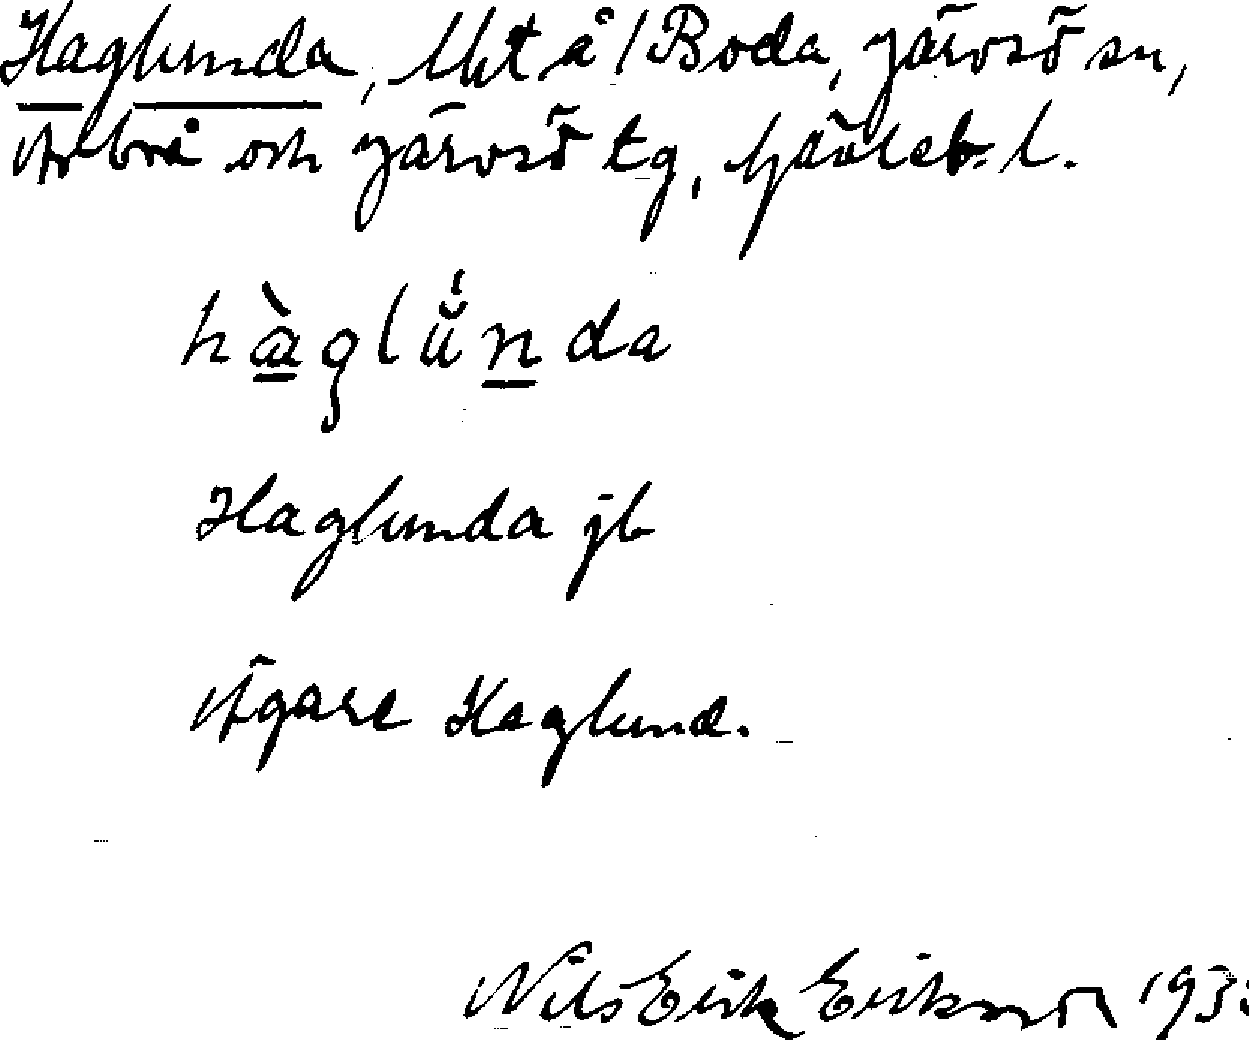 Haglunda, lht å 1 Boda, Järvsö sn,
Arbrå och Järvsö tg, Gävleb. l.
hàglŭ́nda
Haglunda jb
Ägare Haglund.
Nils Erik Eriksson